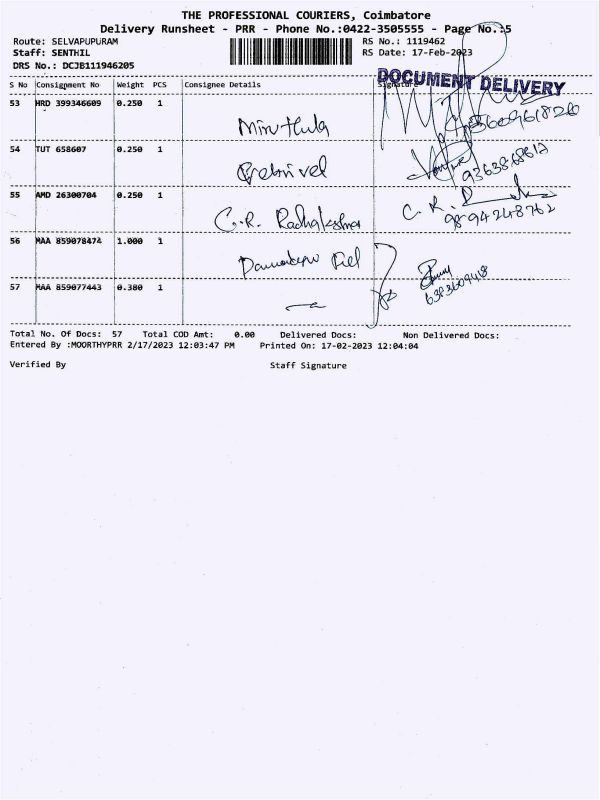 THE PROFESSIONAL COURIERS, Coimbatore
Delivery Runsheet - PRR - Phone No.:0422-3505555 - Page No.:5
Route: SELVAPUPURAM RS No.: 1119462
Staff: SENTHIL RS Date: 17-Feb-2023
DRS No.: DCJB111946205
DOCUMENT DELIVERY
S No Consignment No Weight PCS Consignee Details Signature
53 HRD 399346609 0.250 1
Miruthula
54 TUT 658607 0.250 1
Vetrivel
55 AMD 26300704 0.250 1
C.R. Radhakrishna C. R.
9894248762
56 MAA 859078474 1.000 1
6383609418
57 MAA 859077443 0.380 1
Total No. Of Docs: 57 Total COD Amt: 0.00 Delivered Docs: Non Delivered Docs:
Entered By :MOORTHYPRR 2/17/2023 12:03:47 PM Printed On: 17-02-2023 12:04:04
Verified By Staff Signature